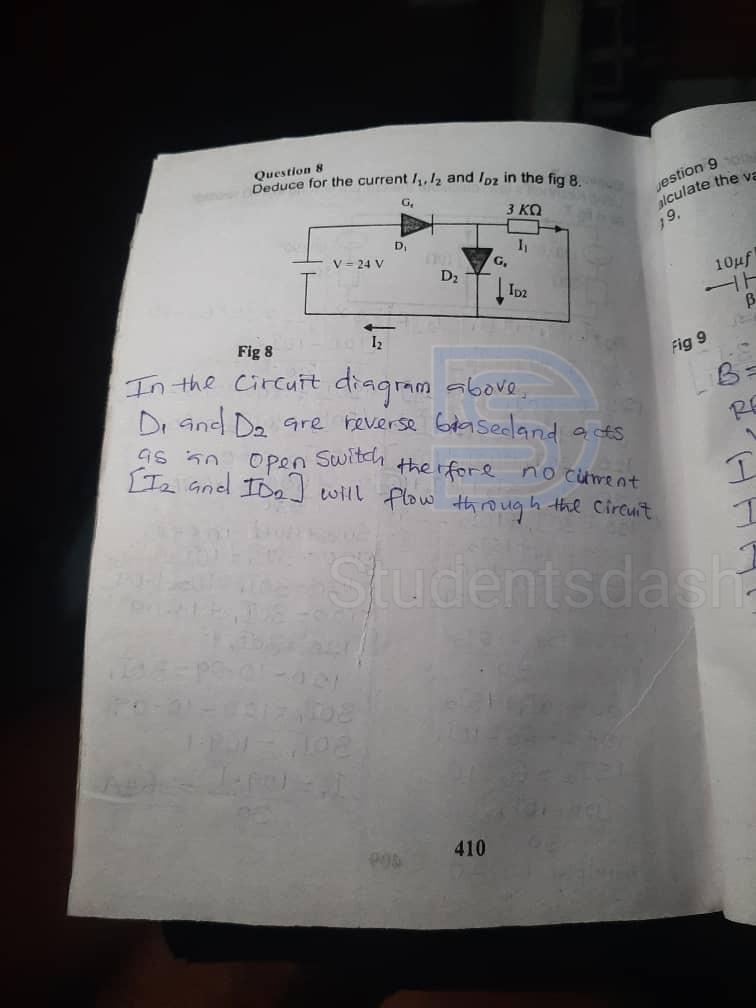 Question 8
Deduce for the current I₁, I₂ and I_D2 in the fig 8.
Gₑ
3 KΩ
D₁
I₁
V = 24 V
Gₑ
D₂
I_D2
I₂
Fig 8
In the circuit diagram above,
D₁ and D₂ are reverse biased and acts
as an open switch therfore no current
[I₂ and ID₂] will flow through the circuit
Studentsdash
410
uestion 9
alculate the va
9.
10μf
B
Fig 9
B =
I
I
I